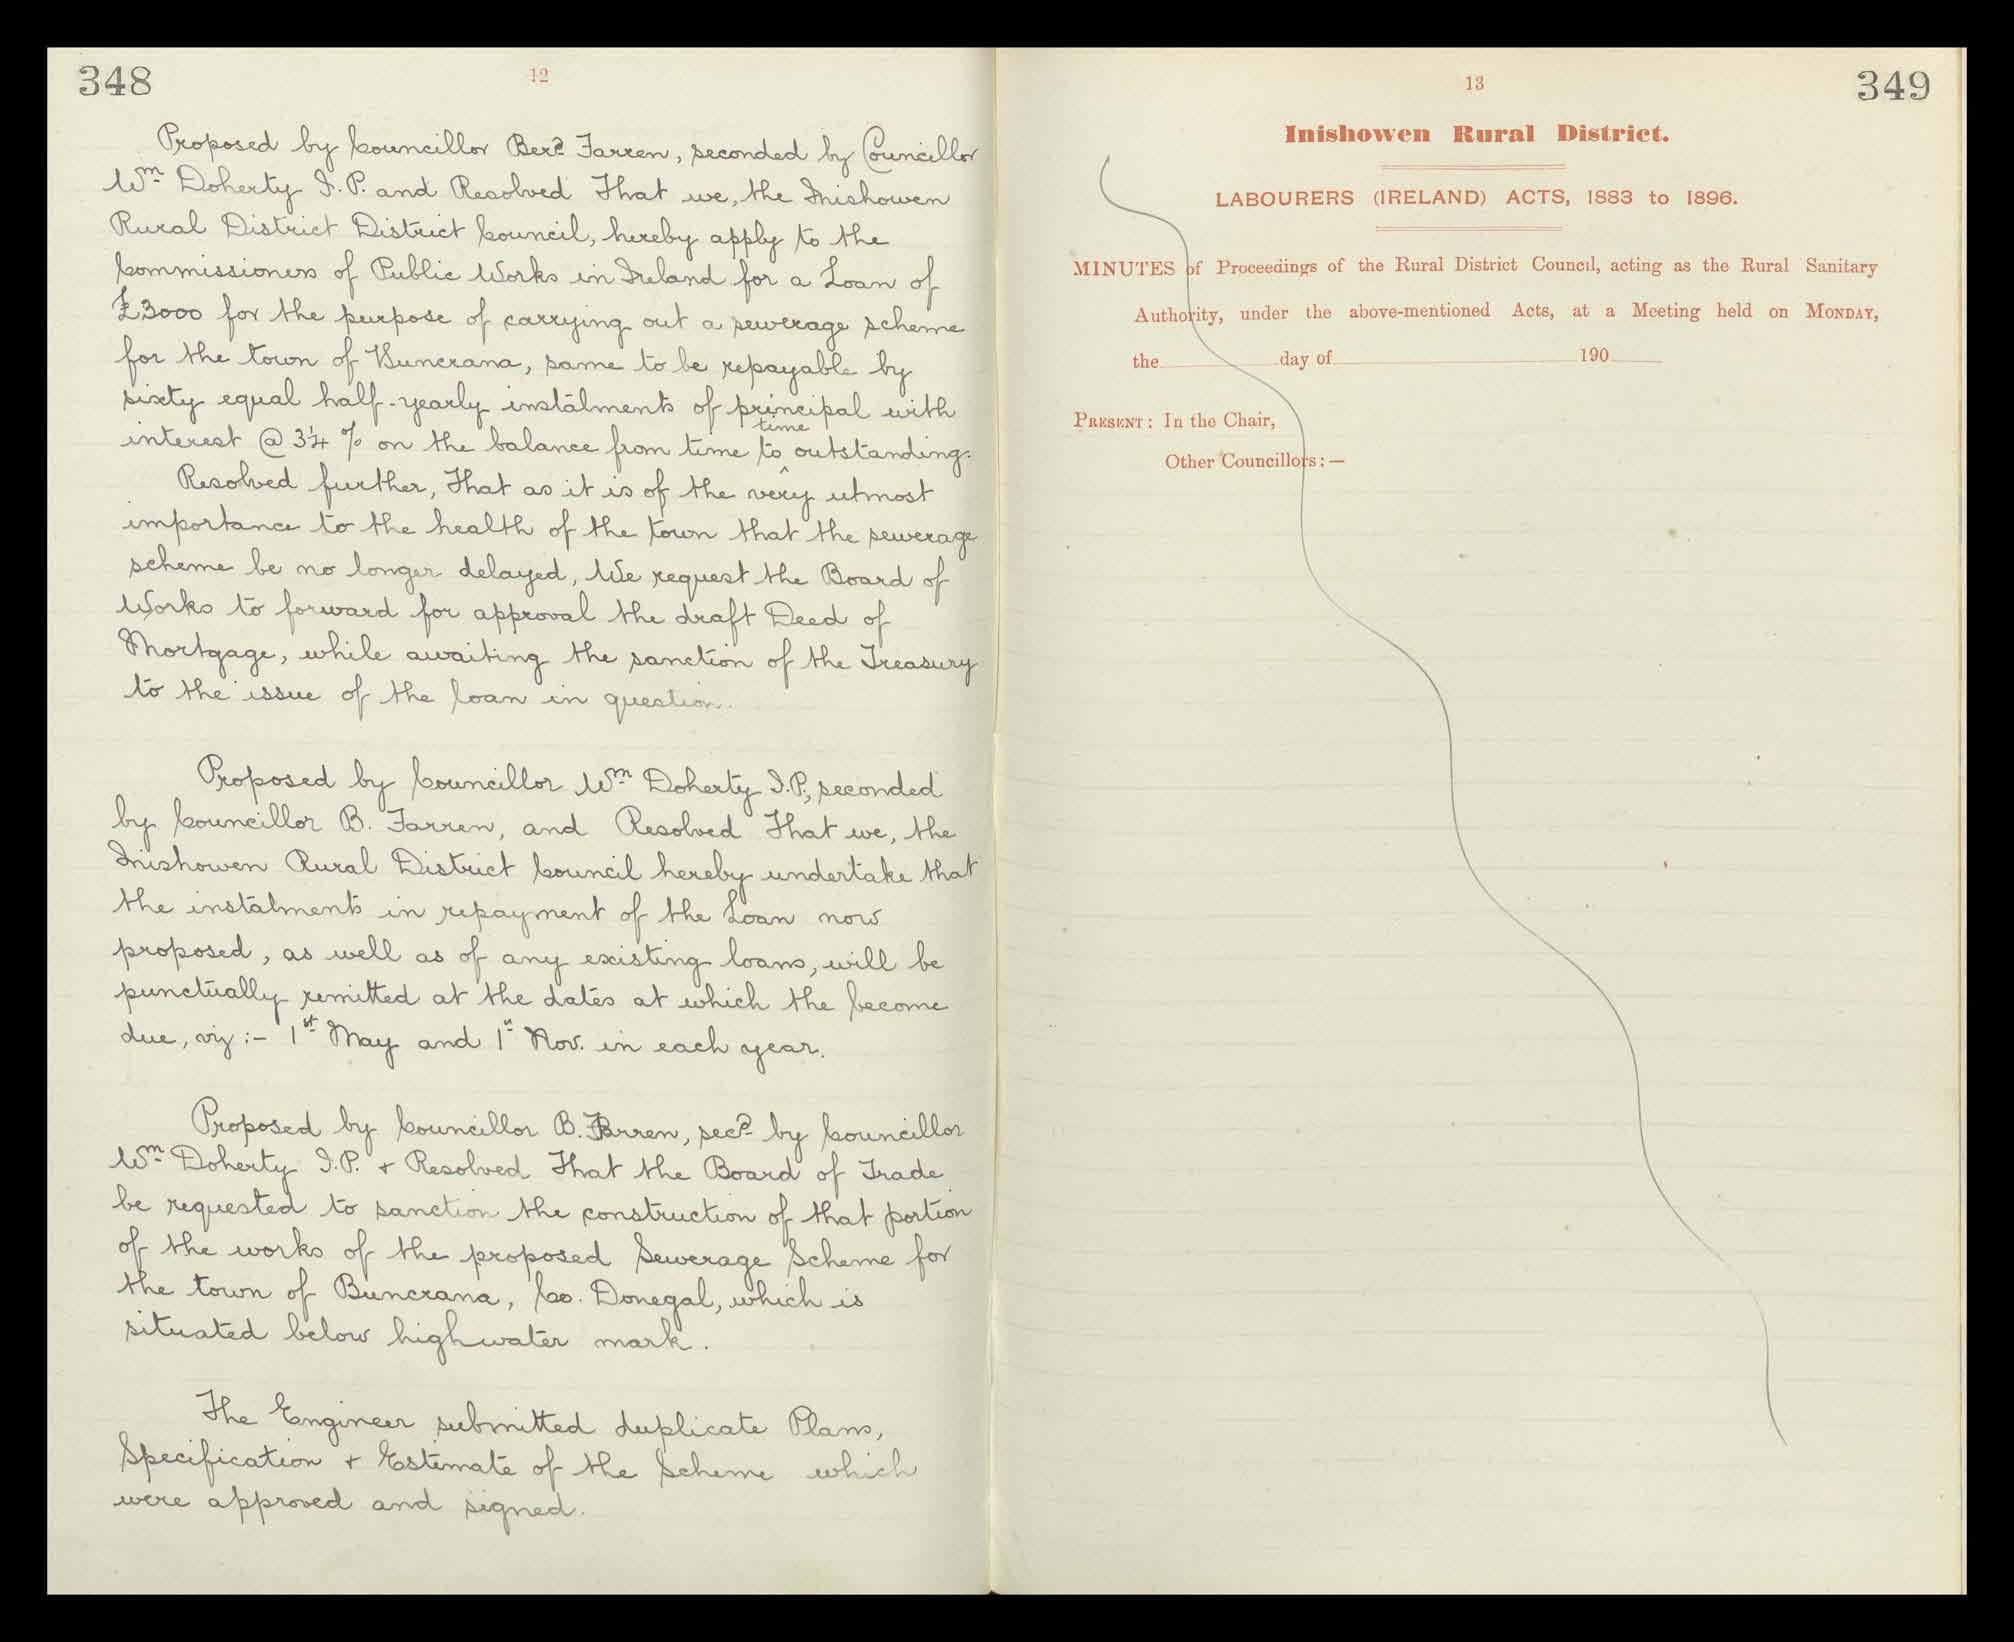 348
12
Proposed by Councillor Berd Farren, seconded by Councillor
Wm Doherty J.P. and Resolved That we, the Inishowen
Rural District District Council, hereby apply to the
Commissioners of Public Works in Ireland for a Loan of
£3000 for the purpose of carrying out a sewerage scheme
for the town of Buncrana, same to be repayable by
sixty equal half-yearly instalments of principal with
interest @ 3¼ % on the balance from time to time outstanding.
Resolved further, That as it is of the very utmost
importance to the health of the town that the sewerage
scheme be no longer delayed, We request the Board of
Works to forward for approval the draft Deed of
Mortgage, while awaiting the sanction of the Treasury
to the issue of the loan in question.
Proposed by Councillor Wm Doherty J.P., seconded
by Councillor B. Farren, and Resolved That we, the
Inishowen Rural District Council hereby undertake that
the instalments in repayment of the Loan now
proposed, as well as of any existing loans, will be
punctually remitted at the dates at which the become
due, viz :- 1st May and 1st Nov. in each year.
Proposed by Councillor B. Farren, secd by Councillor
Wm Doherty J.P. + Resolved That the Board of Trade
be requested to sanction the construction of that portion
of the works of the proposed Sewerage Scheme for
the town of Buncrana, Co. Donegal, which is
situated below highwater mark.
The Engineer submitted duplicate Plans,
Specification + Estimate of the Scheme which
were approved and signed.
13
349
Inishowen Rural District.
LABOURERS (IRELAND) ACTS, 1883 to 1896.
MINUTES of Proceedings of the Rural District Council, acting as the Rural Sanitary
Authority, under the above-mentioned Acts, at a Meeting held on MONDAY,
the day of 190
PRESENT: In the Chair,
Other Councillors:—